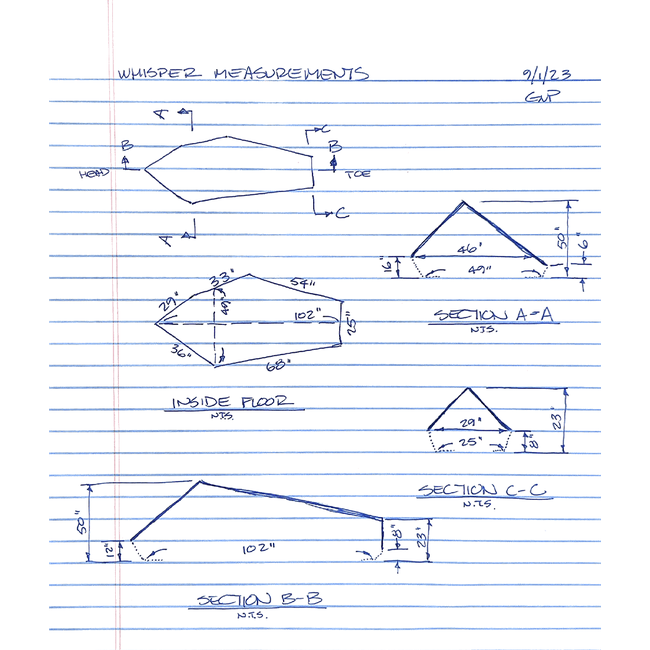 WHISPER MEASUREMENTS 9/1/23
GMP
A
C
B B
HEAD TOE
C
A
50"
6"
46"
16"
49"
SECTION A-A
N.T.S.
33"
54"
29"
49"
102"
25"
36"
68"
INSIDE FLOOR
N.T.S.
23"
29"
25"
8"
SECTION C-C
N.T.S.
50"
12"
102"
8"
23"
SECTION B-B
N.T.S.